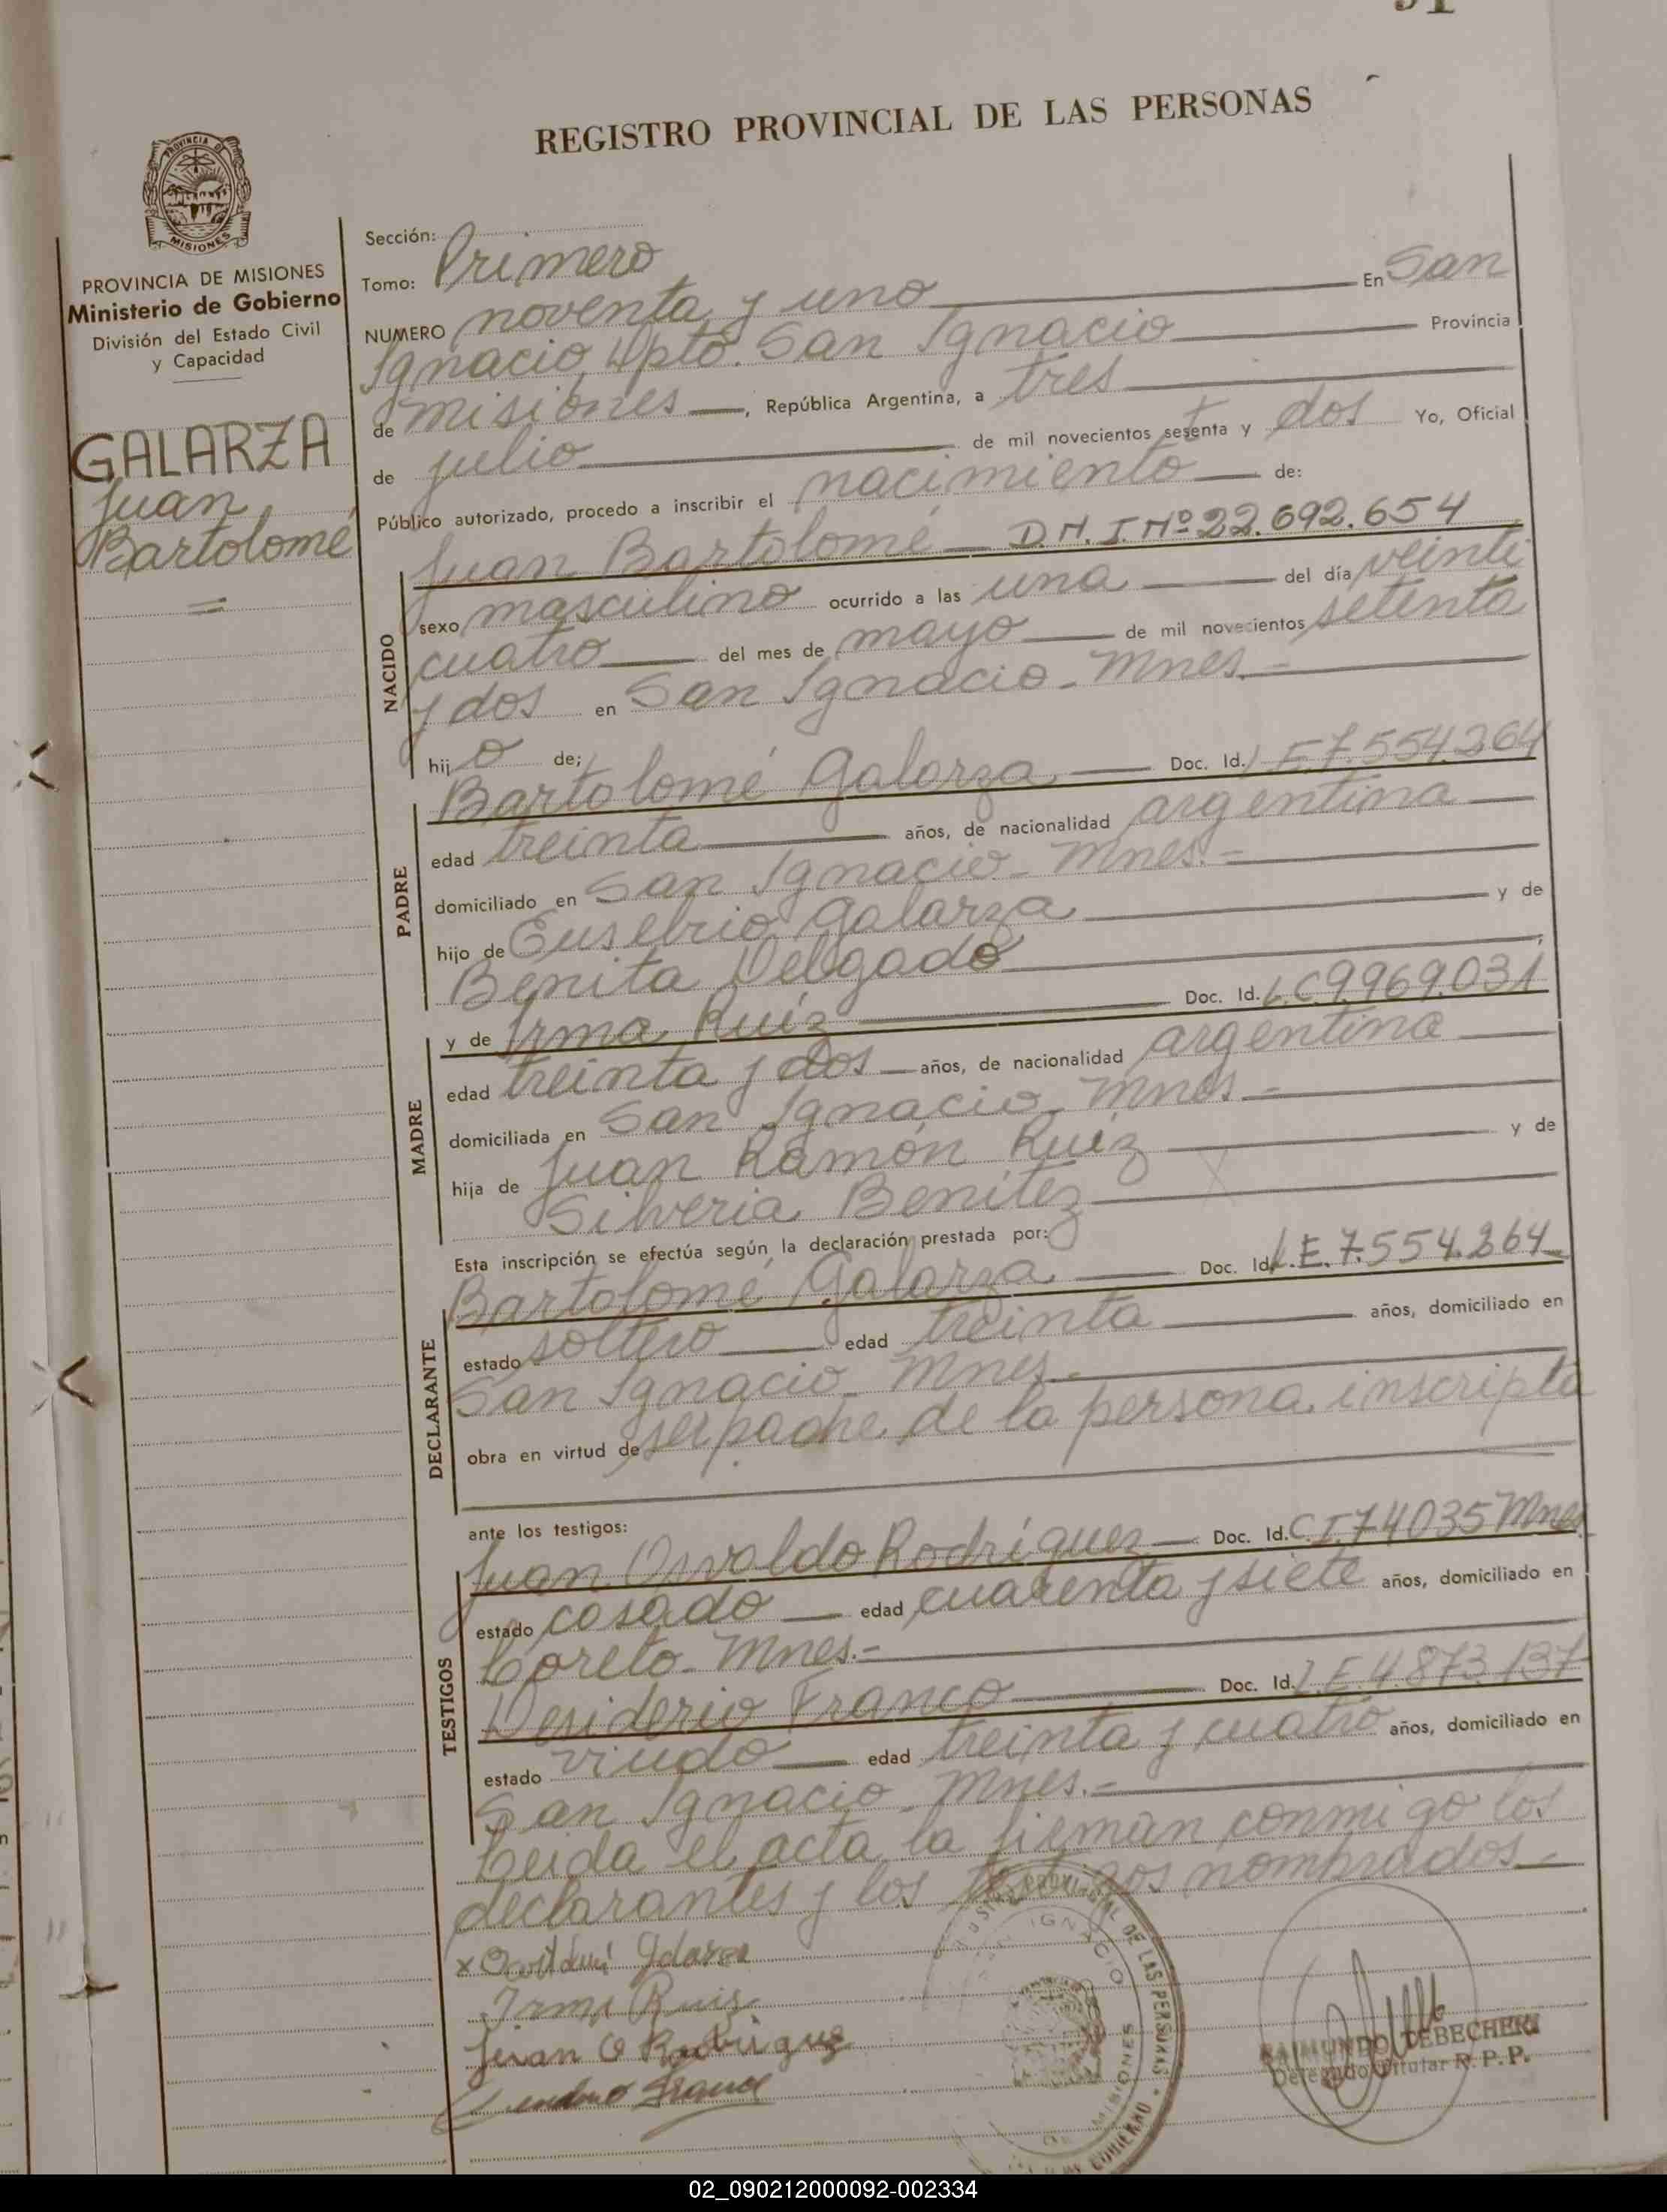 REGISTRO PROVINCIAL DE LAS PERSONAS
PROVINCIA DE
MISIONES
PROVINCIA DE MISIONES
Ministerio de Gobierno
División del Estado Civil
y Capacidad
GALARZA
Juan
Bartolomé
Sección:
Tomo: Primero
NUMERO noventa y uno En San
Ignacio Dpto. San Ignacio Provincia
de misiones, República Argentina, a tres
de julio de mil novecientos sesenta y dos Yo, Oficial
Público autorizado, procedo a inscribir el nacimiento de:
Juan Bartolomé D.N.I. Nº 22.692.654
NACIDO
sexo masculino ocurrido a las una del día veinti
cuatro del mes de mayo de mil novecientos setenta
y dos en San Ignacio - Mnes.-
hijo de;
Bartolomé Galarza Doc. Id. L.E. 7.554.264
PADRE
edad treinta años, de nacionalidad argentina
domiciliado en San Ignacio - Mnes.-
hijo de Eusebio Galarza y de
Benita Delgado;
y de Irma Ruiz Doc. Id. L.C 9.969.031
MADRE
edad treinta y dos años, de nacionalidad argentina
domiciliada en San Ignacio - Mnes.-
hija de Juan Ramón Ruiz y de
Silveria Benítez
Esta inscripción se efectúa según la declaración prestada por:
Bartolomé Galarza Doc. Id. L.E. 7.554.264
DECLARANTE
estado soltero edad treinta años, domiciliado en
San Ignacio - Mnes.-
obra en virtud de ser padre de la persona inscripta
ante los testigos:
Juan Osvaldo Rodríguez Doc. Id. C.I. 74035 Mnes
TESTIGOS
estado casado edad cuarenta y siete años, domiciliado en
Loreto - Mnes.-
Desiderio Franco Doc. Id. L.E. 4.873.137
estado viudo edad treinta y cuatro años, domiciliado en
San Ignacio - Mnes.-
Leida el acta, la firman conmigo los
declarantes y los testigos nombrados.-
Irma Ruiz
Juan O Rodriguez
Franco
IGNACIO
DE LAS PERSONAS
MISIONES
GOBIERNO
RAIMUNDO TEBECHERI
Delegado Titular R.P.P.
02_090212000092-002334